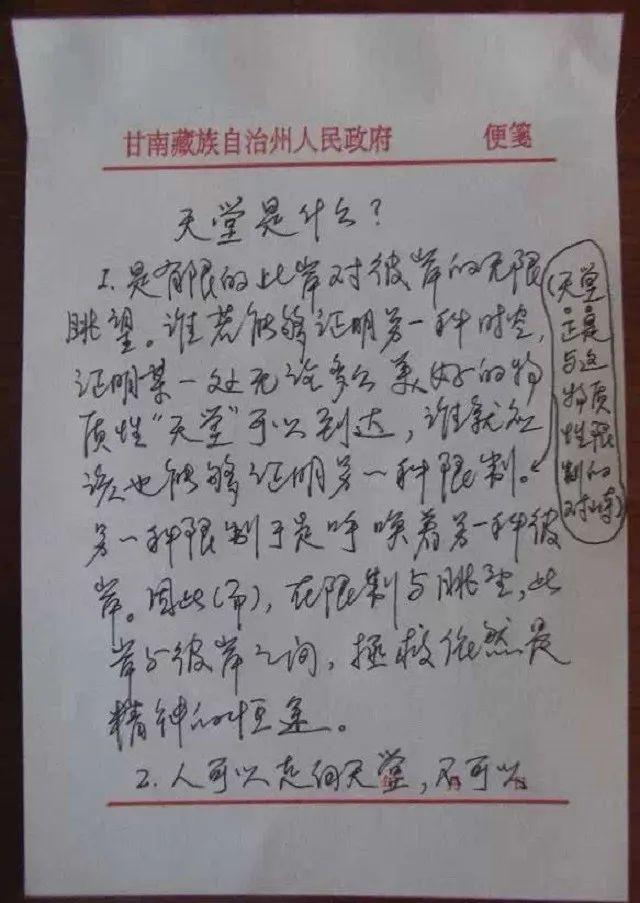 甘南藏族自治州人民政府 便笺
天堂是什么？
1. 是有限的此岸对彼岸的无限
眺望。谁若能够证明另一种时空，
证明某一处无论多么美好的物
质性“天堂”可以到达，谁就应
该也能够证明另一种限制。
(天堂
正是
与这
物质
性限
制的
对峙)
另一种限制于是呼唤着另一种彼
岸。因此(而)，在限制与眺望、此
岸与彼岸之间，拯救依然是
精神的恒途。
2. 人可以走向天堂，不可以